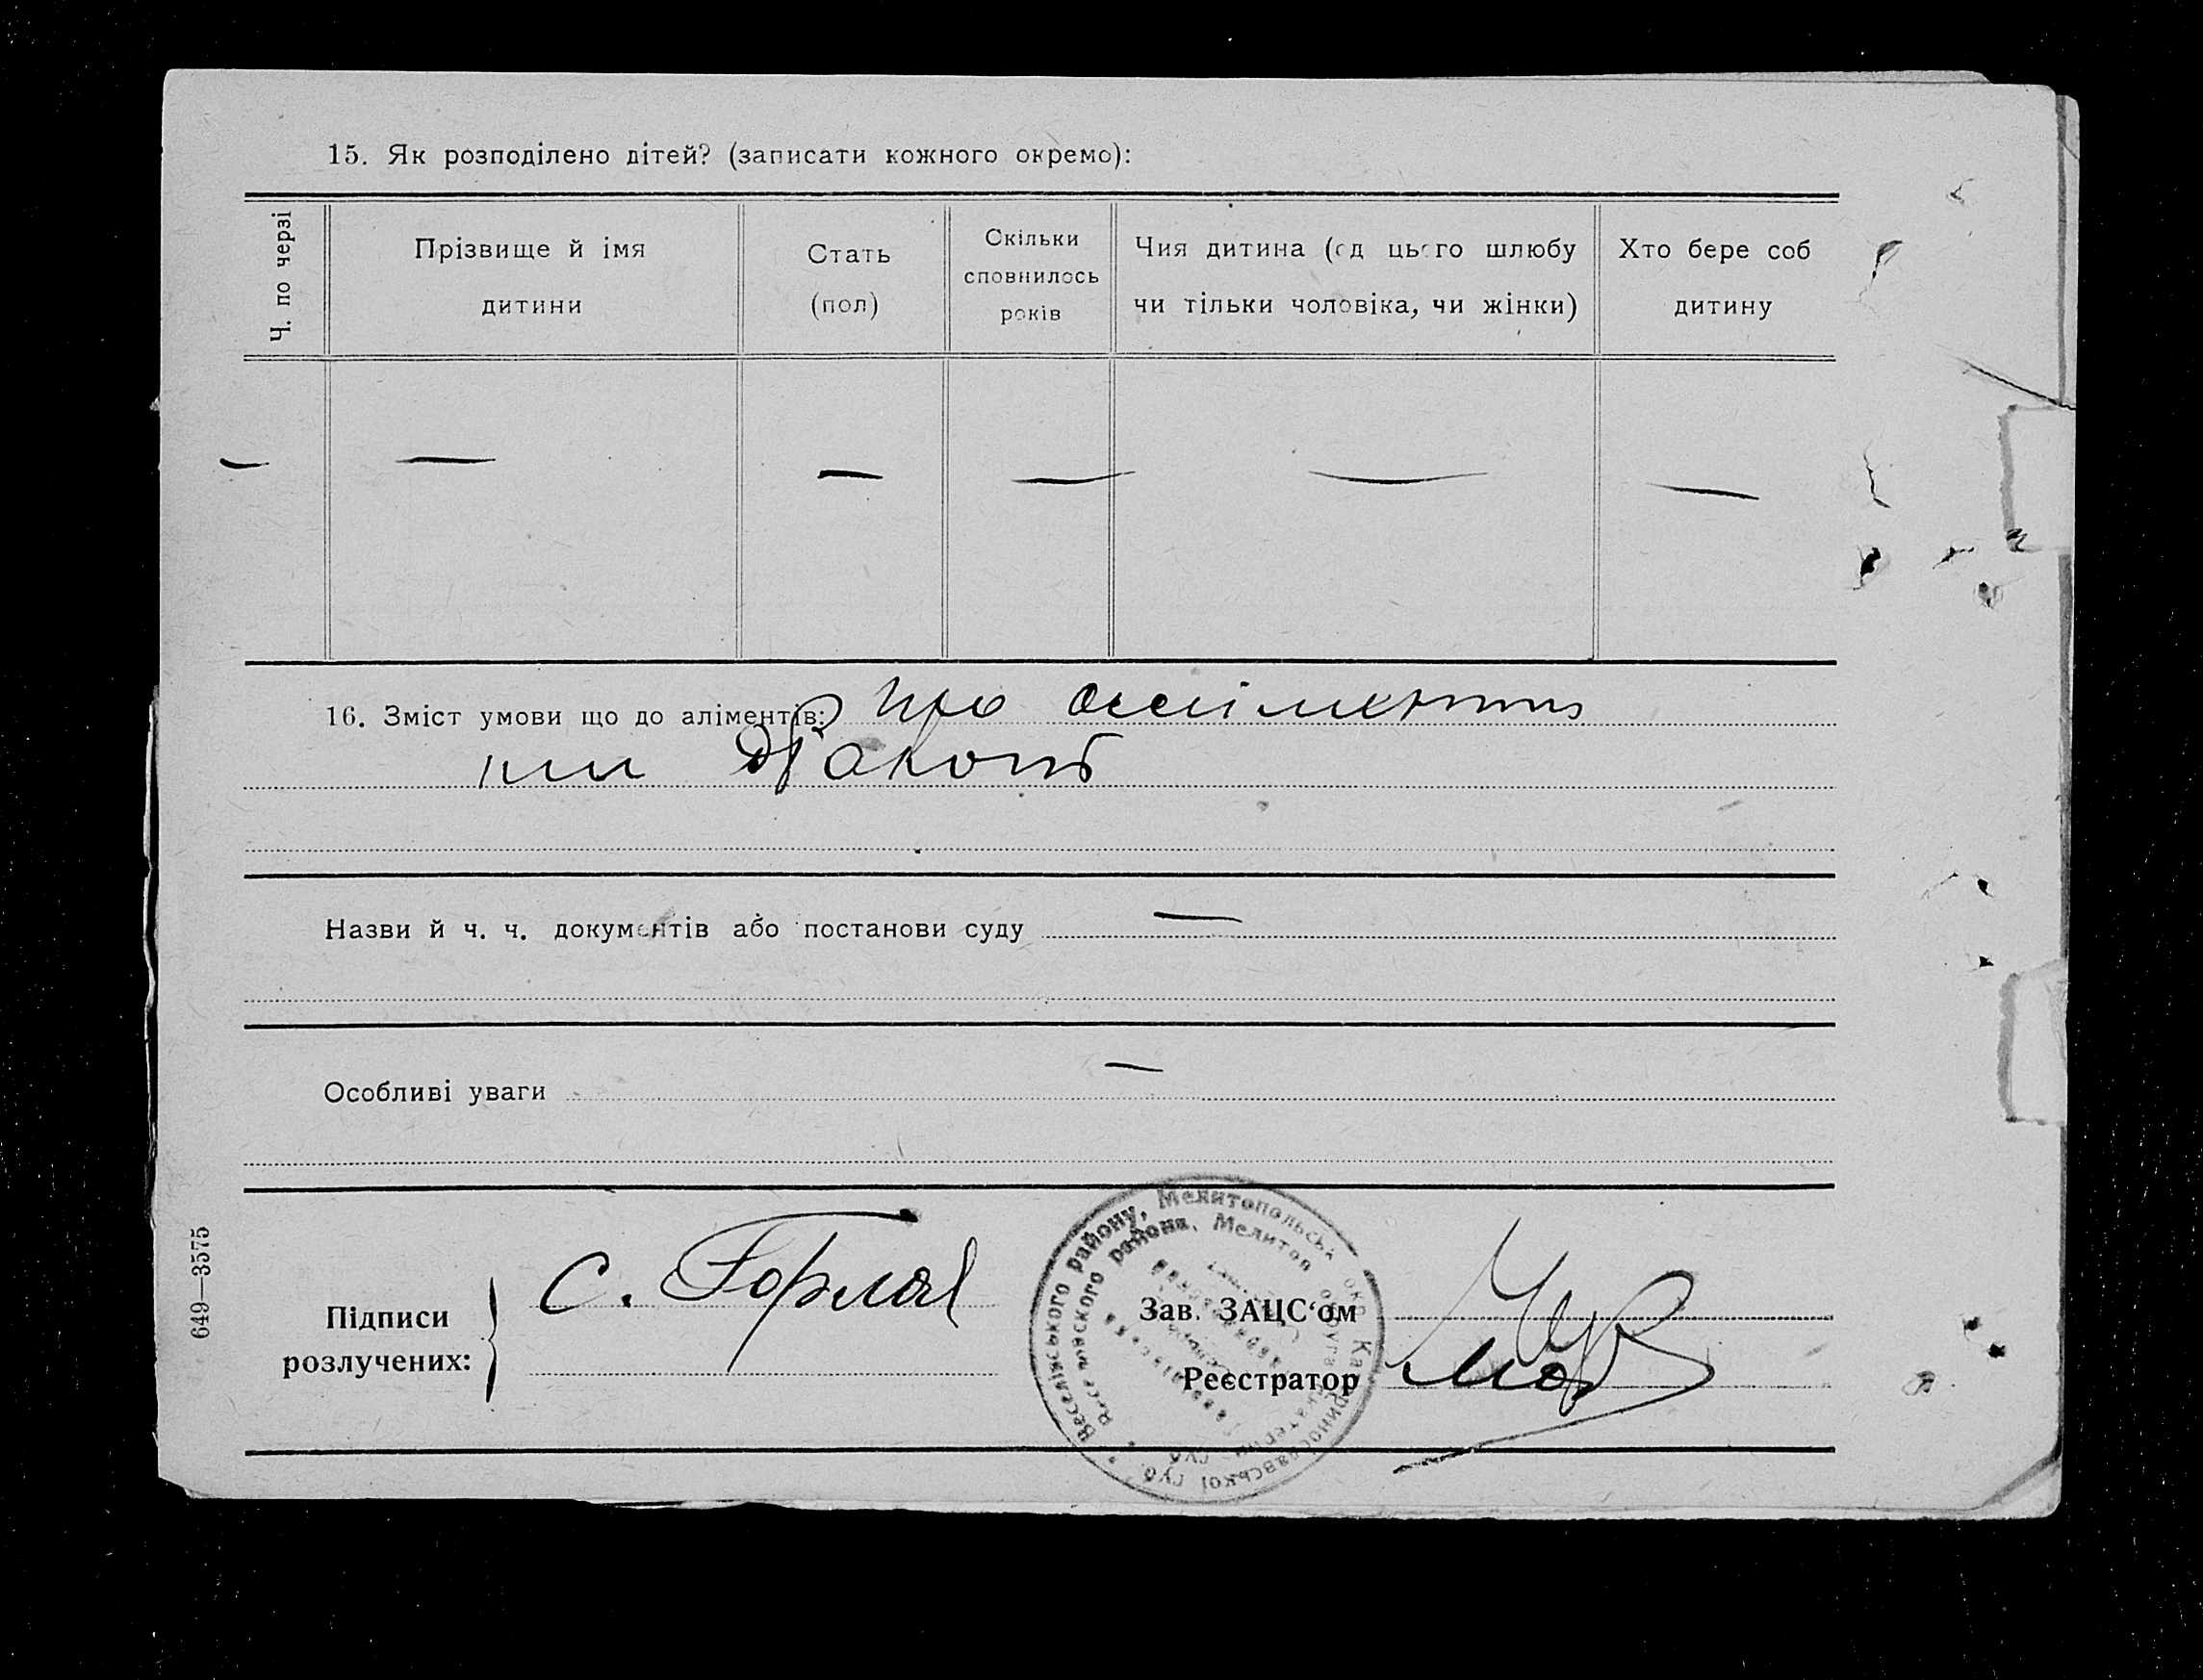 15. Як розподілено дітей? (записати кожного окремо):
Ч. по черзі
Прізвище й імя дитини
Стать (пол)
Скільки сповнилось років
Чия дитина (од цього шлюбу чи тільки чоловіка, чи жінки)
Хто бере соб дитину
— — — — — —
16. Зміст умови що до аліментів: про
Назви й ч. ч. документів або постанови суду —
Особливі уваги —
Підписи розлучених:
С.
Зав. ЗАЦС‘ом
Реєстратор
Веселівського району, Мелитопольськ окр. Катеринославської губ.
района, Мелитоп округа
649—3575